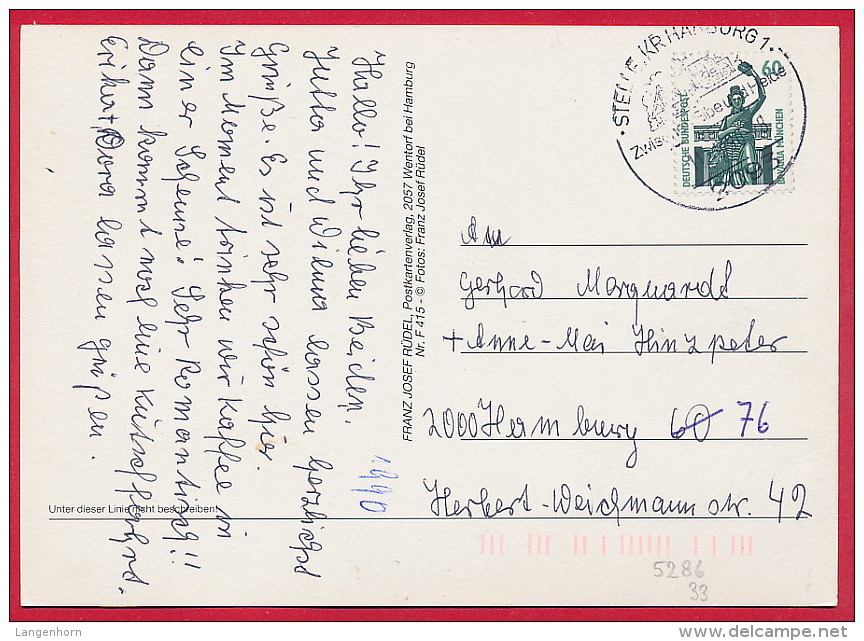 Hallo! Ihr lieben Beiden.
Jutta und Wilma lassen herzlichst
Grüße. Es ist sehr schön hier.
Im Moment trinken wir Kaffee in
einer Scheune! Sehr Romantisch!!
Dann kommt noch eine Kutschfahrt.
Erika + Dora lassen grüßen.
1990
FRANZ JOSEF RÜDEL, Postkartenverlag, 2057 Wentorf bei Hamburg
Nr. F 415 - © Fotos: Franz Josef Rüdel
STELLE, KR HARBURG 1
Elbe und Heide
2093
60
DEUTSCHE BUNDESPOST
BAVARIA MÜNCHEN
An
Gerhard Marquardt
+ Anne-Mai Hinzpeter
2000 Hamburg 60 76
Herbert-Weichmann str. 42
Unter dieser Linie nicht beschreiben!
5286
33
Langenhorn
delcampe.net